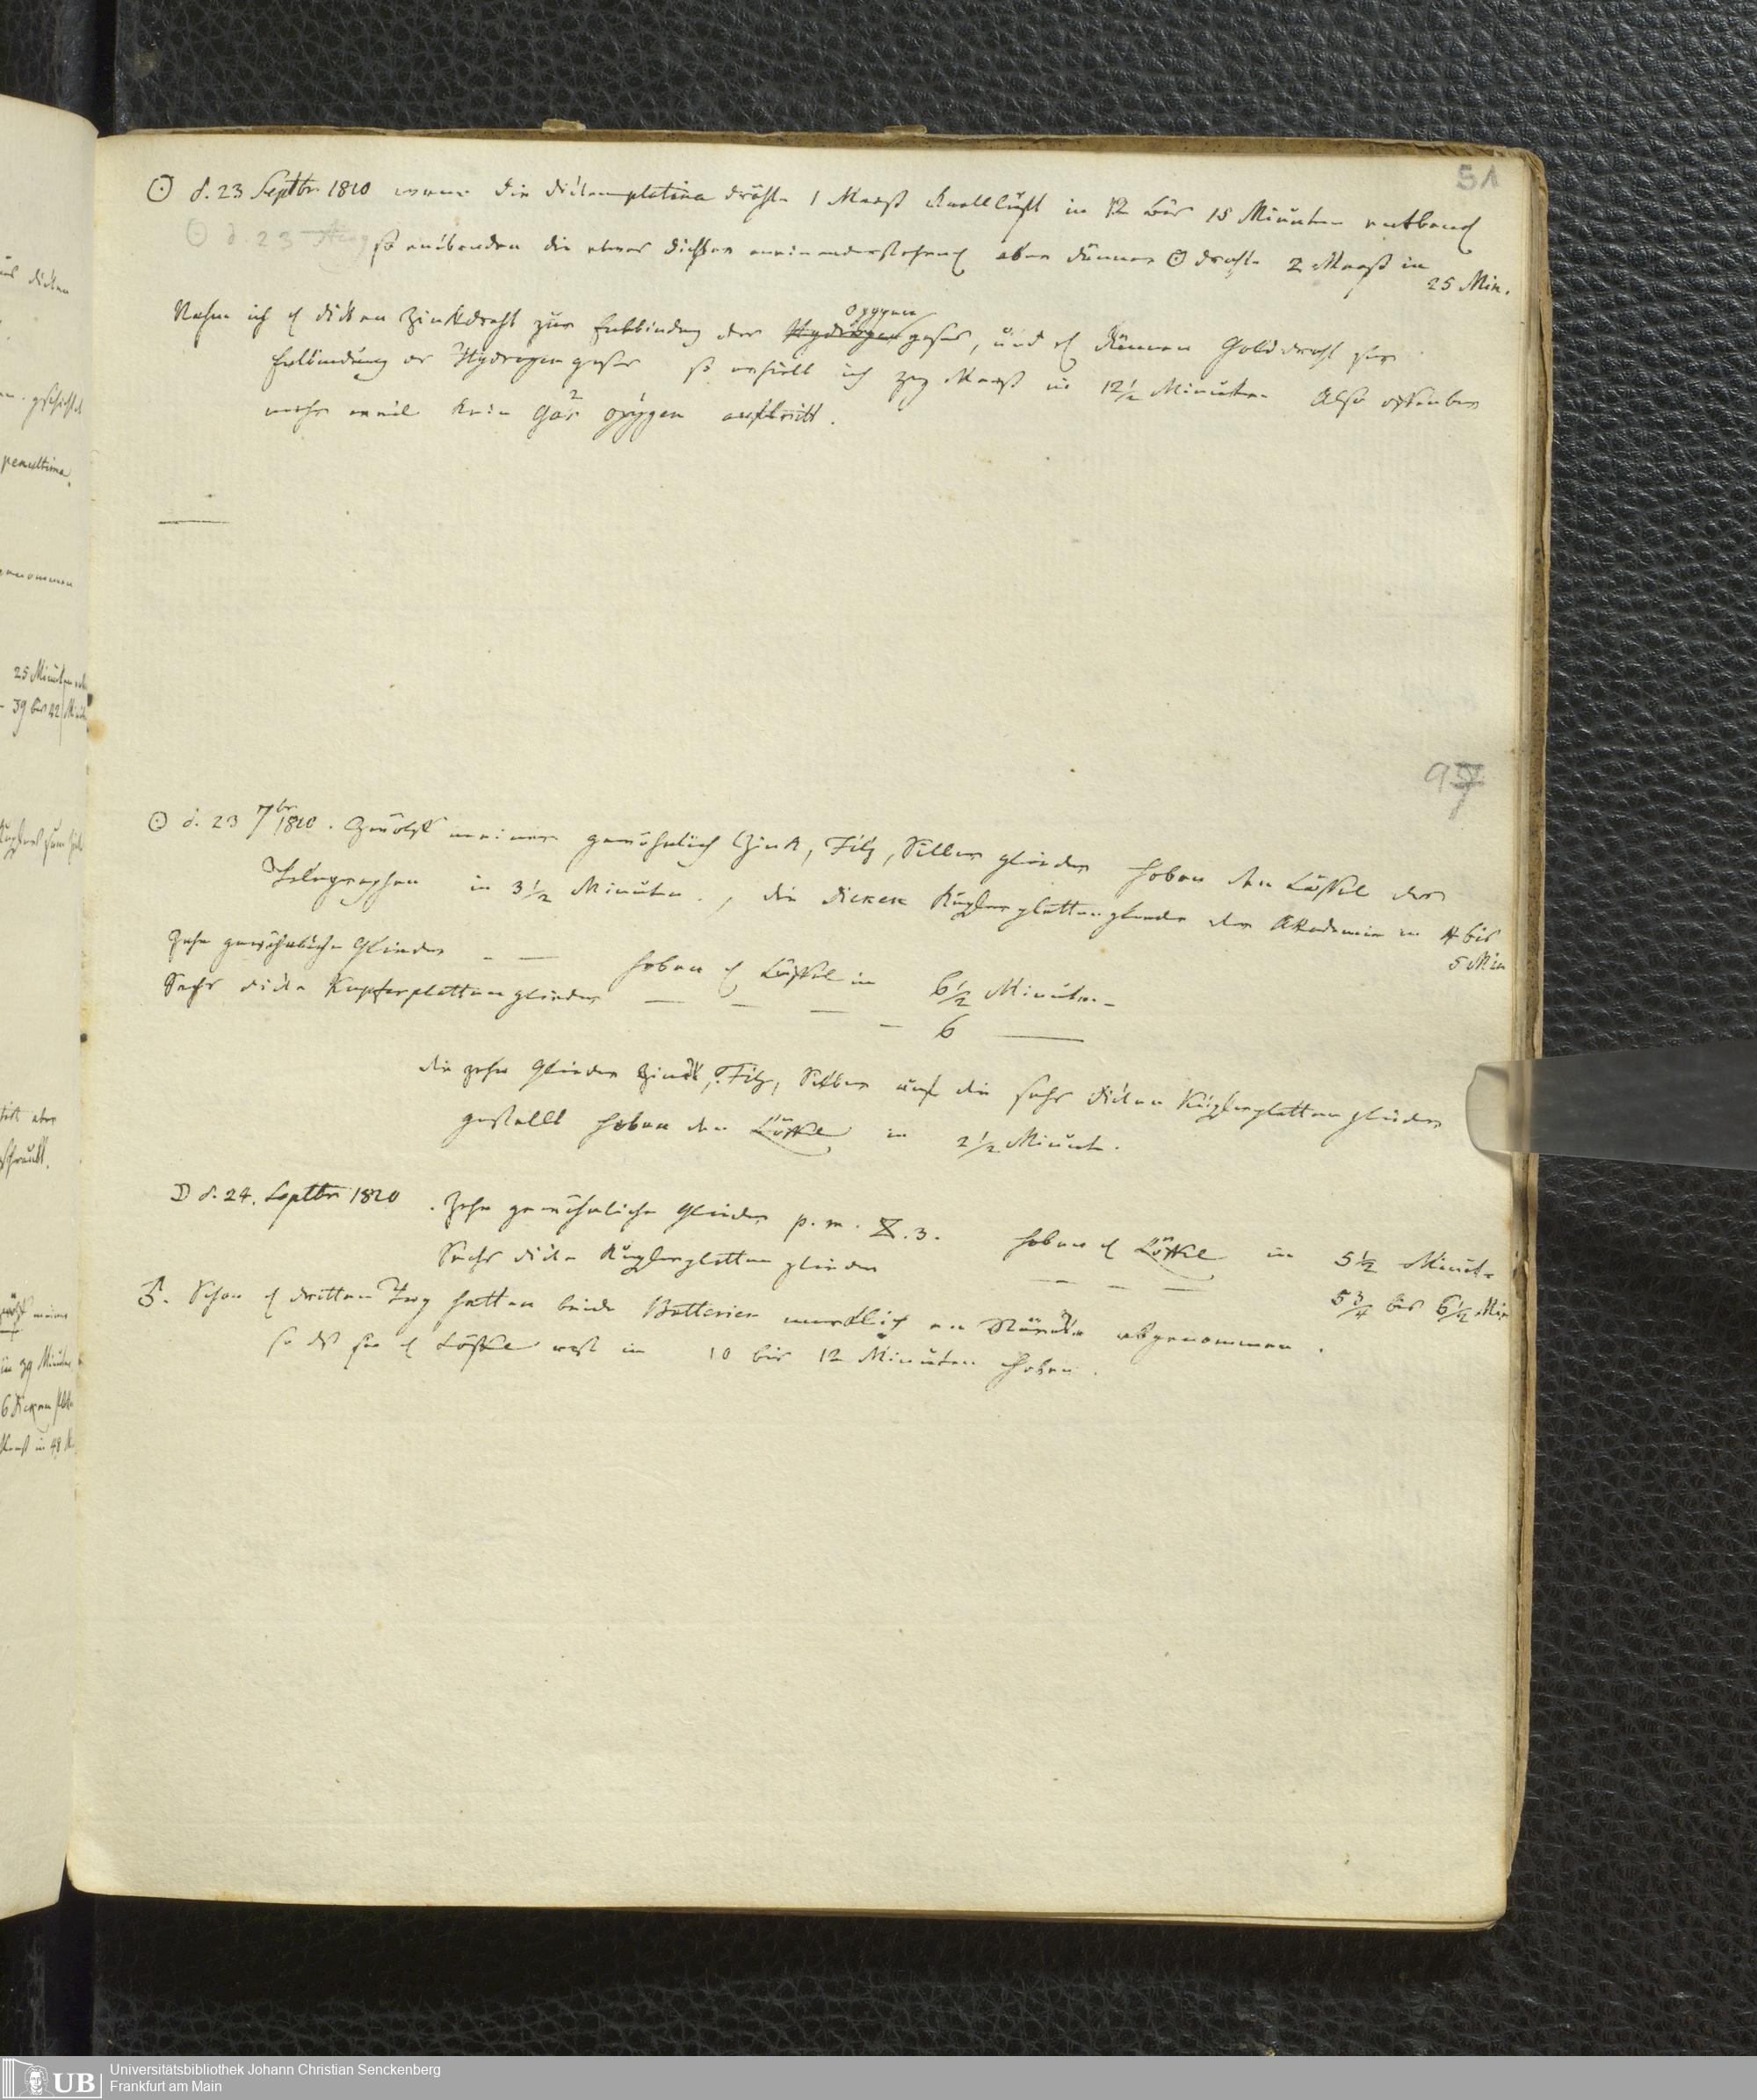 51
☉ d. 23 Septbr 1810 wenn die dicken platina dräthe 1 Maaß Knallluft in 12 bis 15 Minuten entband
☉ d. 23
so entbanden die etwas dichter aneinanderstehend aber dünnen ☉ drathe 2 Maaß in
25 Min.
Nahm ich dicken Zinkdraht zur Entbindung des Hydrogen gases, und dünnen Golddraht zur
Oxygen
Entbindung des Hydrogen gases so erhielt ich Maaß in 12½ Minuten. Also offenbar
mehr weil kein Gas oxygen auftritt.
97
☉ d. 23 7br 1810. Zwölf meiner gewöhnlich Zink, Filz, Silber glieder hoben den Löffel des
Telegraphen in 3½ Minuten, die dicken Kupferplattenglieder der Akademie in 4 bis
5 Min
Zehn gewöhnliche Glieder - — hoben Löffel in 6½ Minuten -
Sechs dicke Kupferplattenglieder — — — — 6 —
die zehn Glieder Zink, Filz, Silber auf die sechs dicken Kupferplattenglieder
gestellt hoben den Löffel in 2½ Minut.
☽ d. 24. Septbr 1810. Zehn gewöhnliche Glieder p. m. X. 3. hoben Löffel in 5½ Minut.
Sechs dicke Kupferplattenglieder — — — — 5¾ bis 6½ Min
♂. Schon dritten Tag hatten beide Batterien merklich an Stärke abgenommen.
so daß sie Löffel erst in 10 bis 12 Minuten hoben.
25 Minuten
39 bis 42 Minut
penultima.
genommen
in 39 Minuten
Universitätsbibliothek Johann Christian Senckenberg
Frankfurt am Main
UB